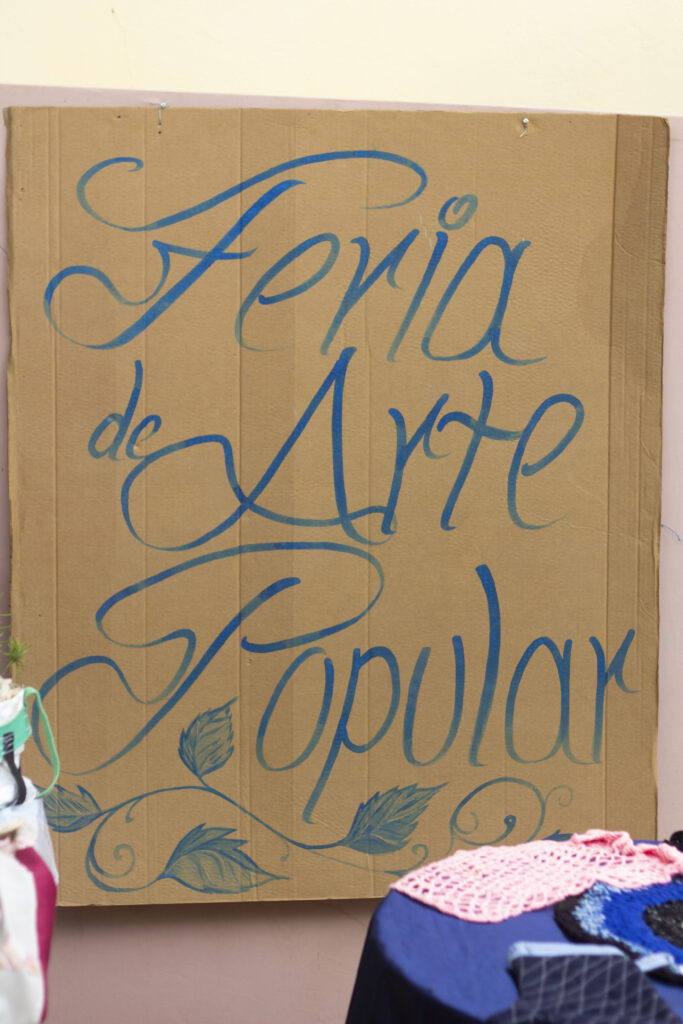 Feria
de Arte
Popular